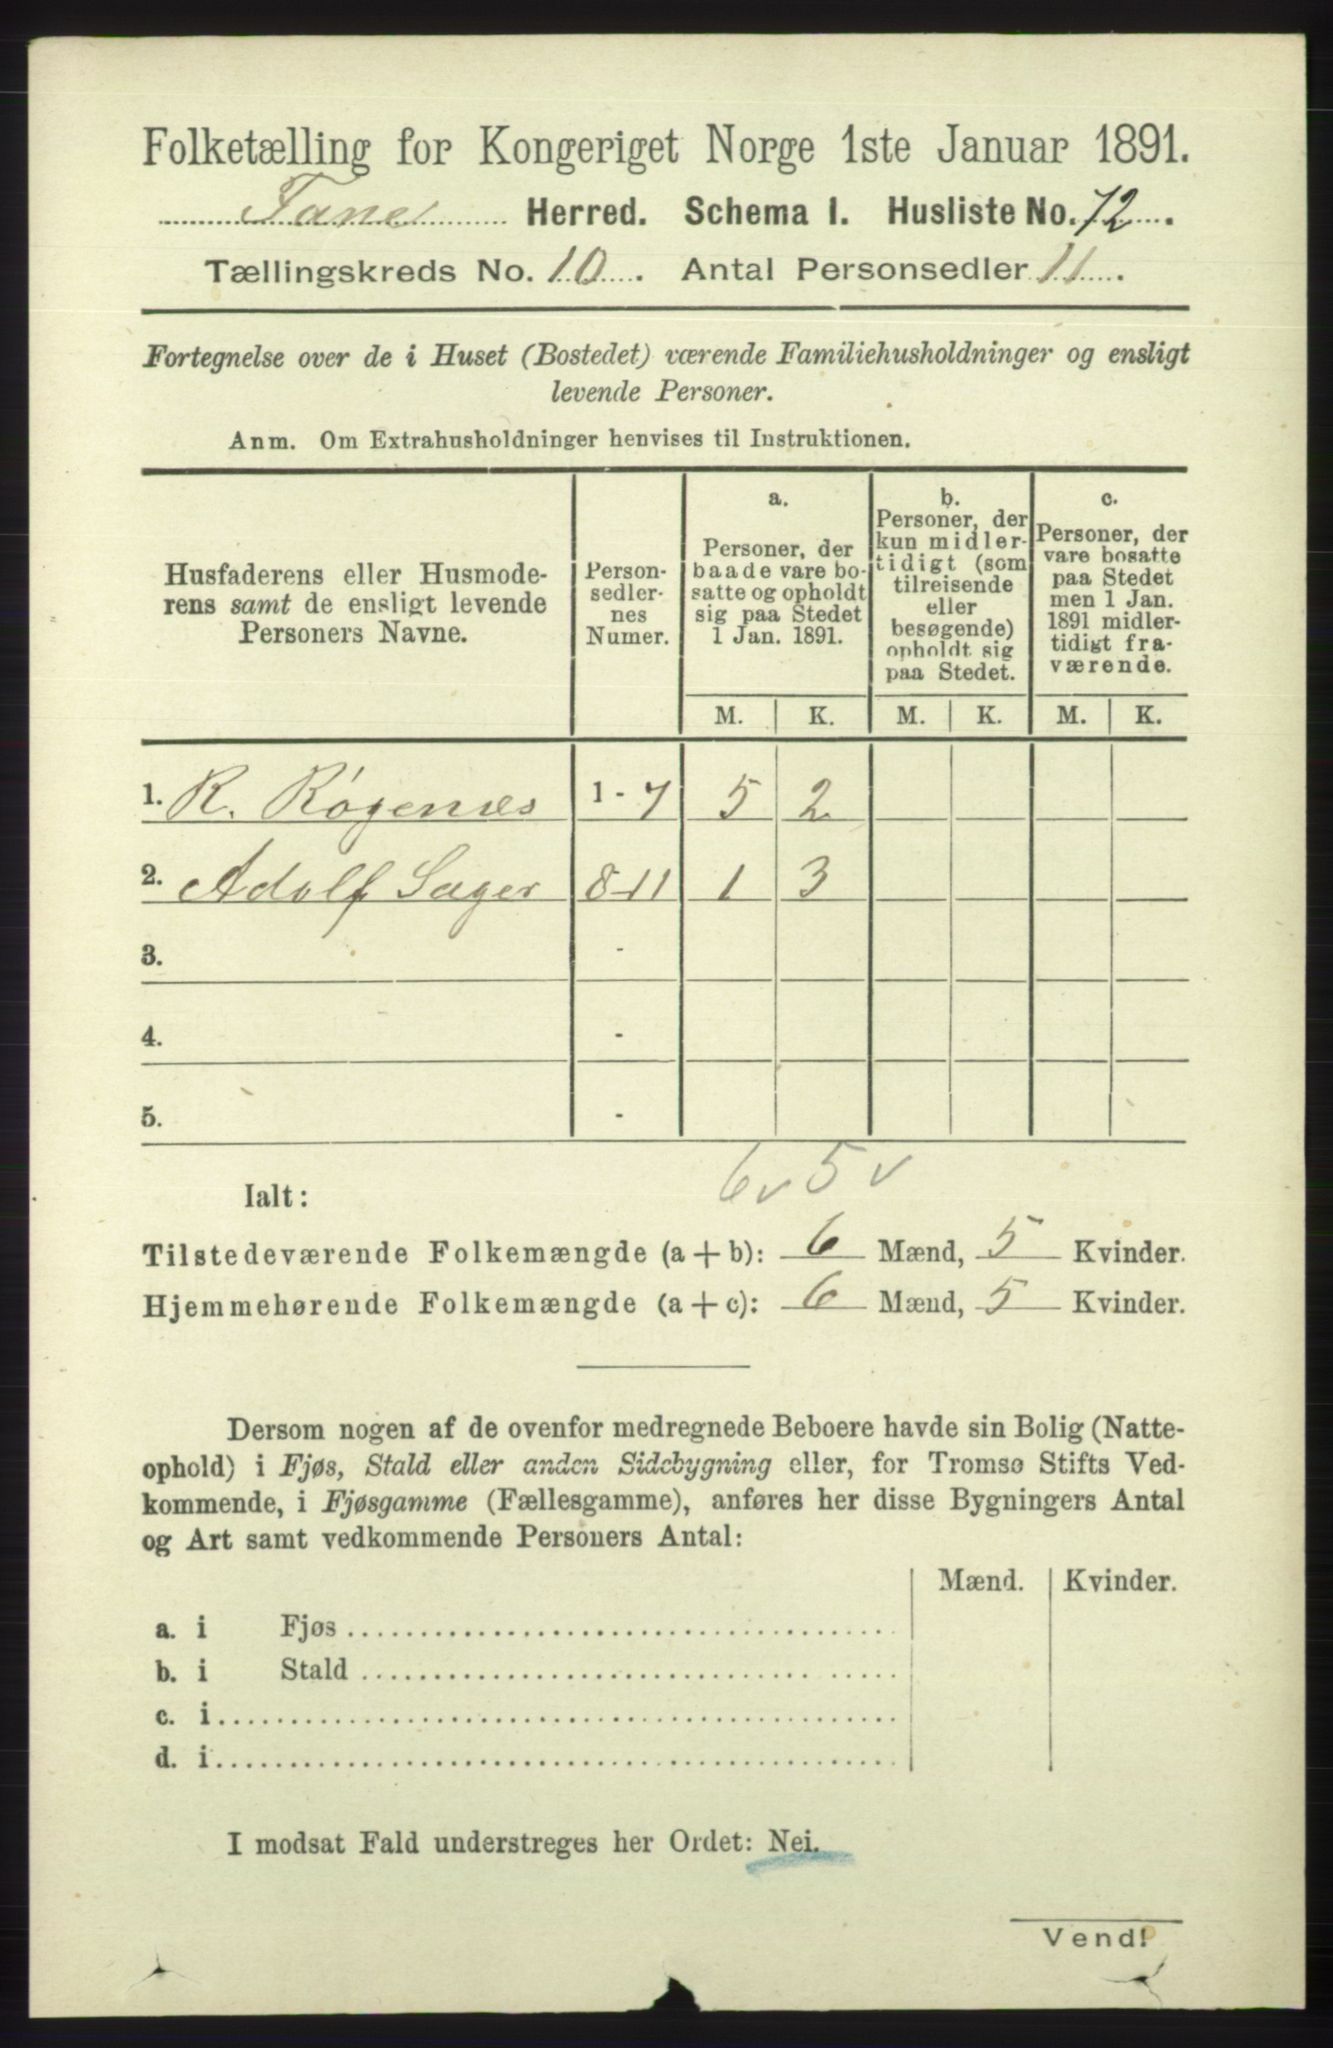 Folketælling for Kongeriget Norge 1ste Januar 1891.
Fane Herred. Schema I. Husliste No. 72.
Tællingskreds No. 10. Antal Personsedler 11.
Fortegnelse over de i Huset (Bostedet) værende Familiehusholdninger og ensligt
levende Personer.
Anm. Om Extrahusholdninger henvises til Instruktionen.
Husfaderens eller Husmode-
rens samt de ensligt levende
Personers Navne.
Person-
sedler-
nes
Numer.
a.
Personer, der
baade vare bo-
satte og opholdt
sig paa Stedet
1 Jan. 1891.
b.
Personer, der
kun midler-
tidigt (som
tilreisende
eller
besøgende)
opholdt sig
paa Stedet.
c.
Personer, der
vare bosatte
paa Stedet
men 1 Jan.
1891 midler-
tidigt fra-
værende.
M. K. M. K. M. K.
1. R. Røgenæs 1-7 5 2
2. Adolf Sager 8-11 1 3
3. -
4. -
5. -
6 v 5 v
Ialt:
Tilstedeværende Folkemængde (a+b): 6 Mænd, 5 Kvinder.
Hjemmehørende Folkemængde (a+c): 6 Mænd, 5 Kvinder.
Dersom nogen af de ovenfor medregnede Beboere havde sin Bolig (Natte-
ophold) i Fjøs, Stald eller anden Sidebygning eller, for Tromsø Stifts Ved-
kommende, i Fjøsgamme (Fællesgamme), anføres her disse Bygningers Antal
og Art samt vedkommende Personers Antal:
Mænd. Kvinder.
a. i Fjøs
b. i Stald
c. i
d. i
I modsat Fald understreges her Ordet: Nei.
Vend!